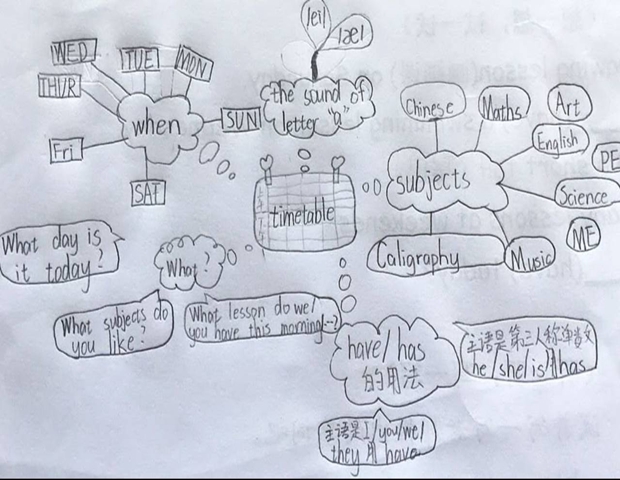 WED
TUE
MON
THUR
when
SUN
Fri
SAT
/ei/
/æ/
the sound of
letter "a"
timetable
subjects
Chinese
Maths
Art
English
PE
Science
ME
Music
Caligraphy
What day is
it today?
What?
What subjects do
you like?
What lesson do we/
you have this morning(~)?
have/has
的用法
主语是第三人称单数
he/she/is/用has
主语是I/you/we/
they 用 have